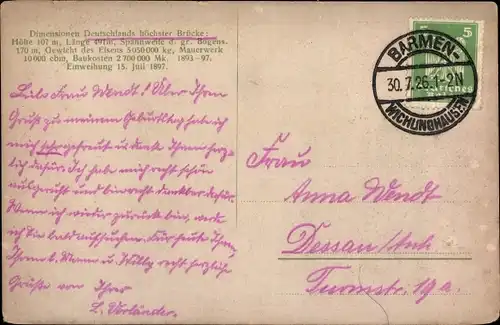 Dimensionen Deutschlands höchster Brücke:
Höhe 107 m, Länge 491 m, Spannweite d. gr. Bogens
170 m, Gewicht des Eisens 5 050 000 kg, Mauerwerk
10 000 cbm, Baukosten 2 700 000 Mk. 1893-97.
Einweihung 15. Juli 1897.
Liebe Frau Wendt! Über Ihren
Gruß zu meinem Geburtstag hab ich
mich sehr gefreut u. danke Ihnen herz-
lich dafür. Ich habe mich recht schön
ausgeruht und bin recht dankbar dafür.
Wenn ich wieder zurück bin, werde
ich Sie bald aufsuchen. Für heute Ihnen,
Ihrem l. Mann u. Willy recht herzliche
Grüße von Ihrer
L. Vorländer.
5
BARMEN-
30.7.26.1-2N
WICHLINGHAUSEN
Frau
Anna Wendt
Dessau/Anh.
Turmstr. 19a.